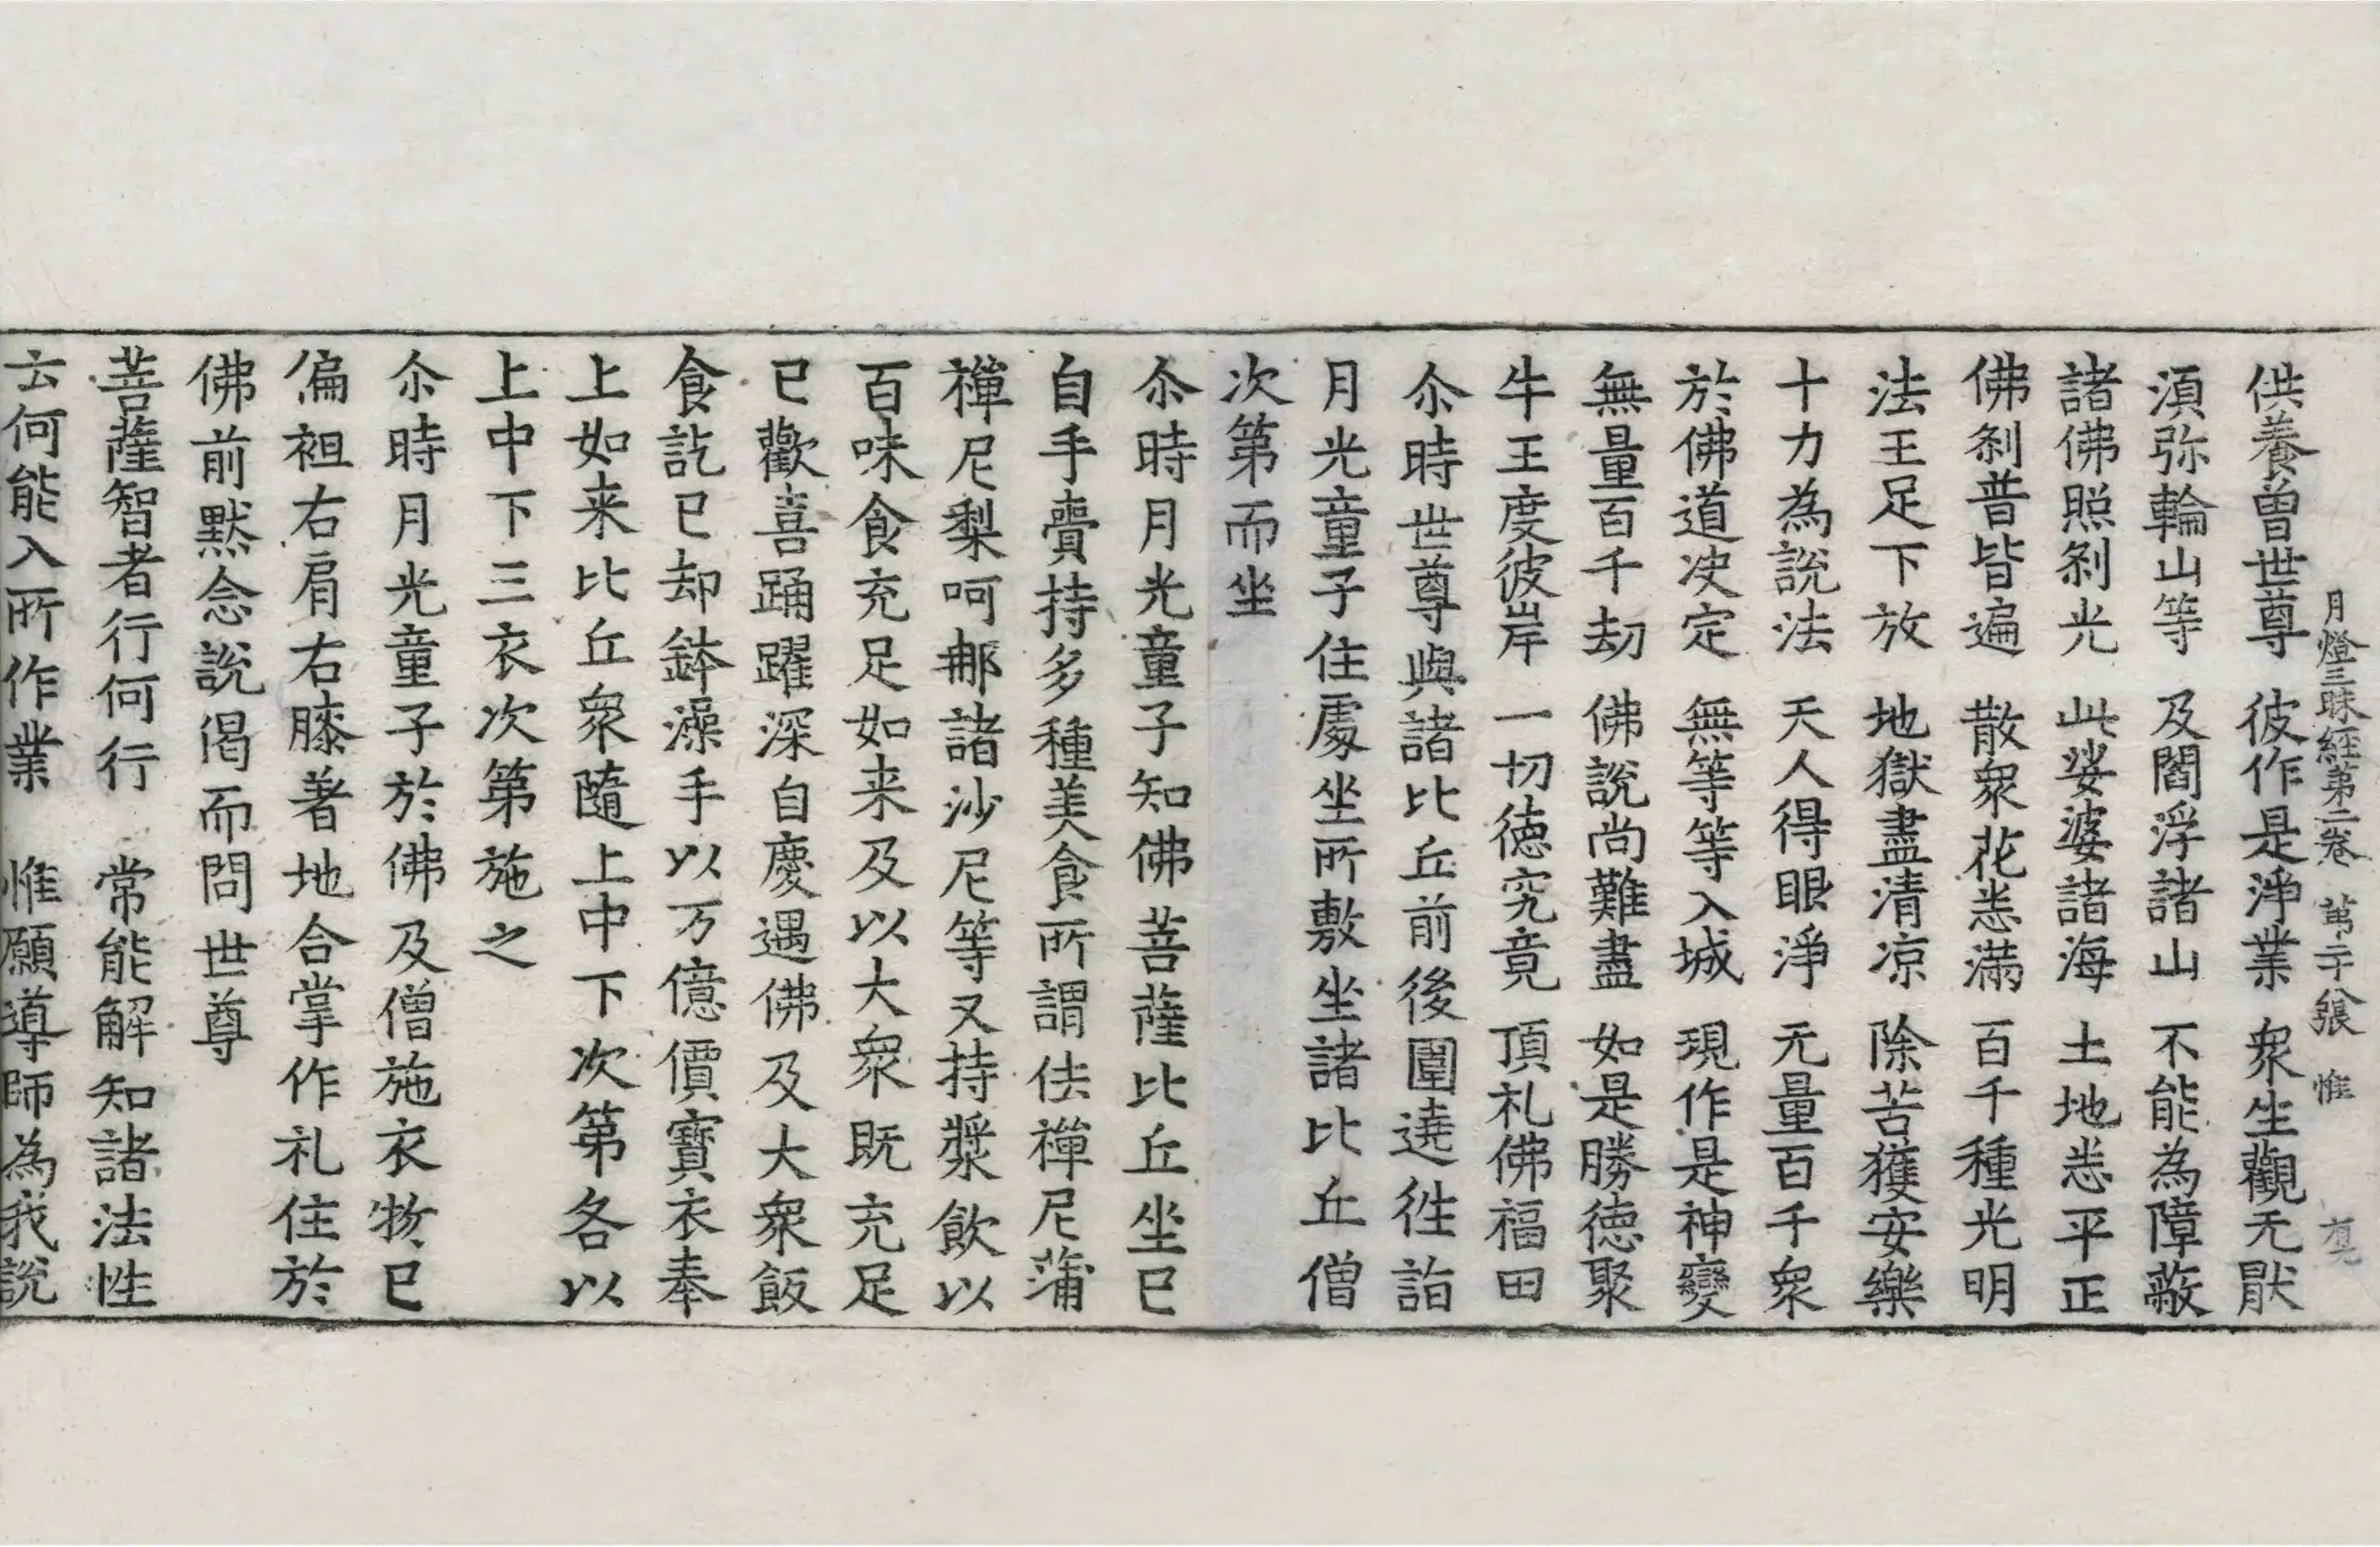 月燈三昧経第二卷 第二十八張 惟
供養曽世尊 彼作是淨業 衆生觀无猒
湏弥輪山等 及閻浮諸山 不能為障蔽
諸佛照刹光 此娑婆諸海 土地悉平正
佛刹普皆遍 散衆花悉滿 百千種光明
法王足下放 地獄盡清凉 除苦獲安樂
十力為説法 天人得眼淨 无量百千衆
於佛道决定 無等等入城 現作是神變
無量百千劫 佛説尚難盡 如是勝德聚
牛王度彼岸 一切德究竟 頂礼佛福田
尒時世尊與諸比丘前後圍遶往詣
月光童子住處坐所敷坐諸比丘僧
次第而坐
尒時月光童子知佛菩薩比丘坐已
自手賷持多種美食所謂佉禪尼蒲
禪尼梨呵那諸沙尼等又持漿飲以
百味食充足如来及以大衆既充足
已歡喜踊躍深自慶遇佛及大衆飯
食訖已却鉢澡手以万億價寶衣奉
上如来比丘衆隨上中下次第各以
上中下三衣次第施之
尒時月光童子於佛及僧施衣物已
偏袒右肩右膝著地合掌作礼住於
佛前默念説偈而問世尊
菩薩智者行何行 常能解知諸法性
云何能入所作業 惟願導師為我説